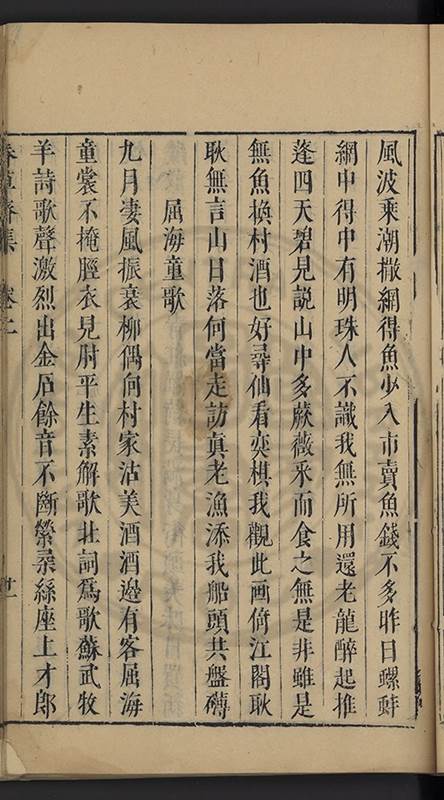 風波乘潮撒網得魚少入市賣魚錢不多昨日螺蚌
網中得中有明珠人不識我無所用還老龍醉起推
蓬四天碧見説山中多蕨薇采而食之無是非雖是
無魚換村酒也好尋仙看奕棋我觀此画倚江閣耿
耿無言山日落何當走訪眞老漁添我船頭共盤礴
屈海童歌
九月凄風振衰柳偶向村家沽美酒酒邊有客屈海
童裳不掩脛衣見肘平生素解歌壮詞爲歌蘇武牧
羊詩歌聲激烈出金石餘音不斷縈㝷絲座上才郎
春草齋集 卷二 廿一